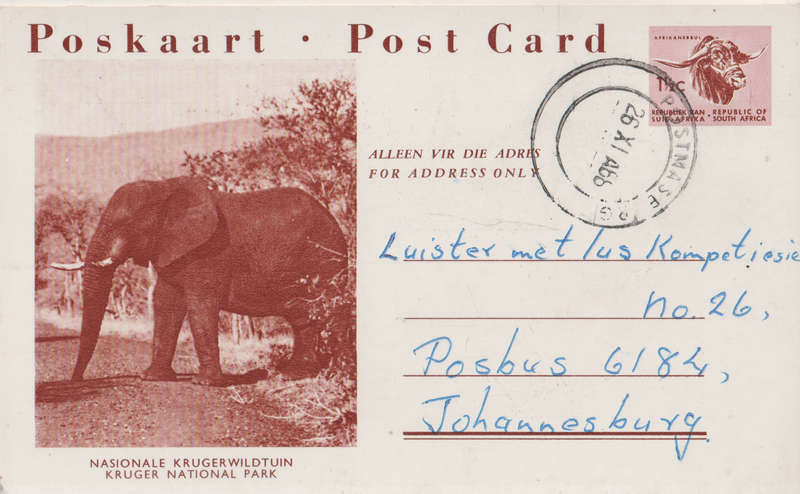 Poskaart · Post Card
AFRIKANERBUL
1½c
REPUBLIEK VAN · REPUBLIC OF
SUID-AFRIKA · SOUTH AFRICA
26 XI
ALLEEN VIR DIE ADRES
FOR ADDRESS ONLY
Luister met lus Kompetiesie
no. 26,
Posbus 6184,
Johannesburg.
NASIONALE KRUGERWILDTUIN
KRUGER NATIONAL PARK